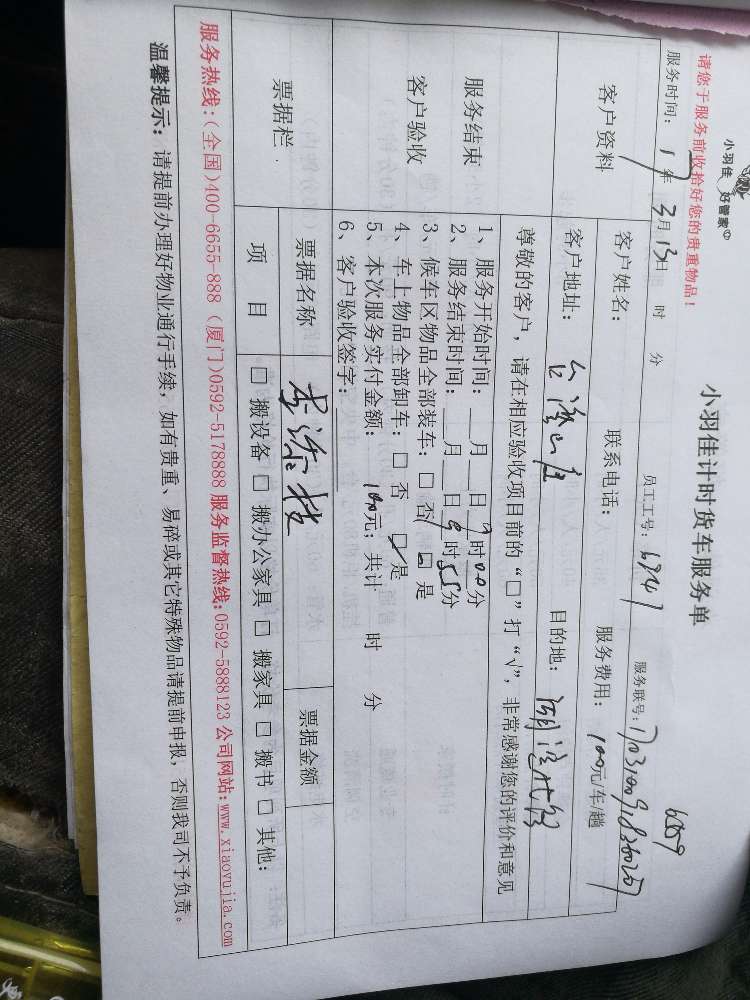 小羽佳 好管家
小羽佳计时货车服务单
请您于服务前收拾好您的贵重物品!
服务时间: 17年 3月 13日 时 分 员工工号: 6747 服务联号:
6359
客户资料
客户姓名: 联系电话: 服务费用: 100元/车/趟
客户地址: 台湾山庄 目的地:
尊敬的客户,请在相应验收项目前的“□”打“√”,非常感谢您的评价和意见
服务结束
客户验收
1、服务开始时间: 月 日 9时00分
2、服务结束时间: 月 日 9时55分
3、候车区物品全部装车: □ 否 □ 是
4、车上物品全部卸车: □ 否 □ 是
5、本次服务实付金额: 100元; 共计 时 分
6、客户验收签字:
票据栏
票据名称 票据金额
项 目 □ 搬设备 □ 搬办公家具 □ 搬家具 □ 搬书 □ 其他:
服务热线:(全国)400-6655-888 (厦门)0592-5178888 服务监督热线:0592-5888123 公司网站:www.xiaoyujia.com
温馨提示: 请提前办理好物业通行手续, 如有贵重、易碎或其它特殊物品请提前申报, 否则我司不予负责。